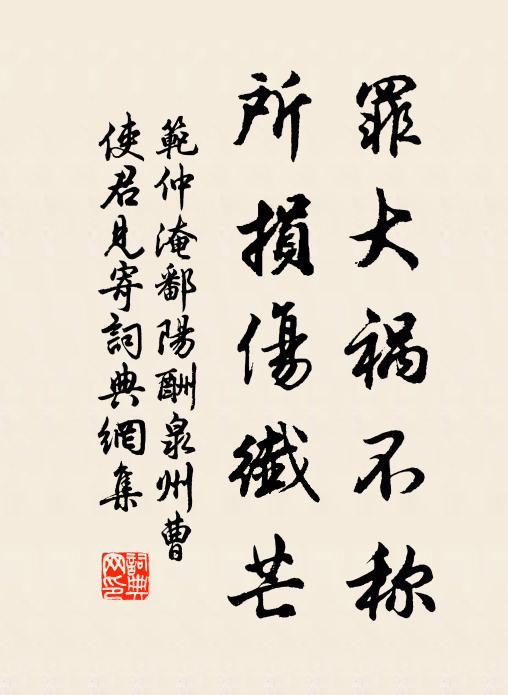 罪大祸不称
所損傷纖芒
範仲淹鄱陽酬泉州曹
使君見寄詞典網集
詞典
网印